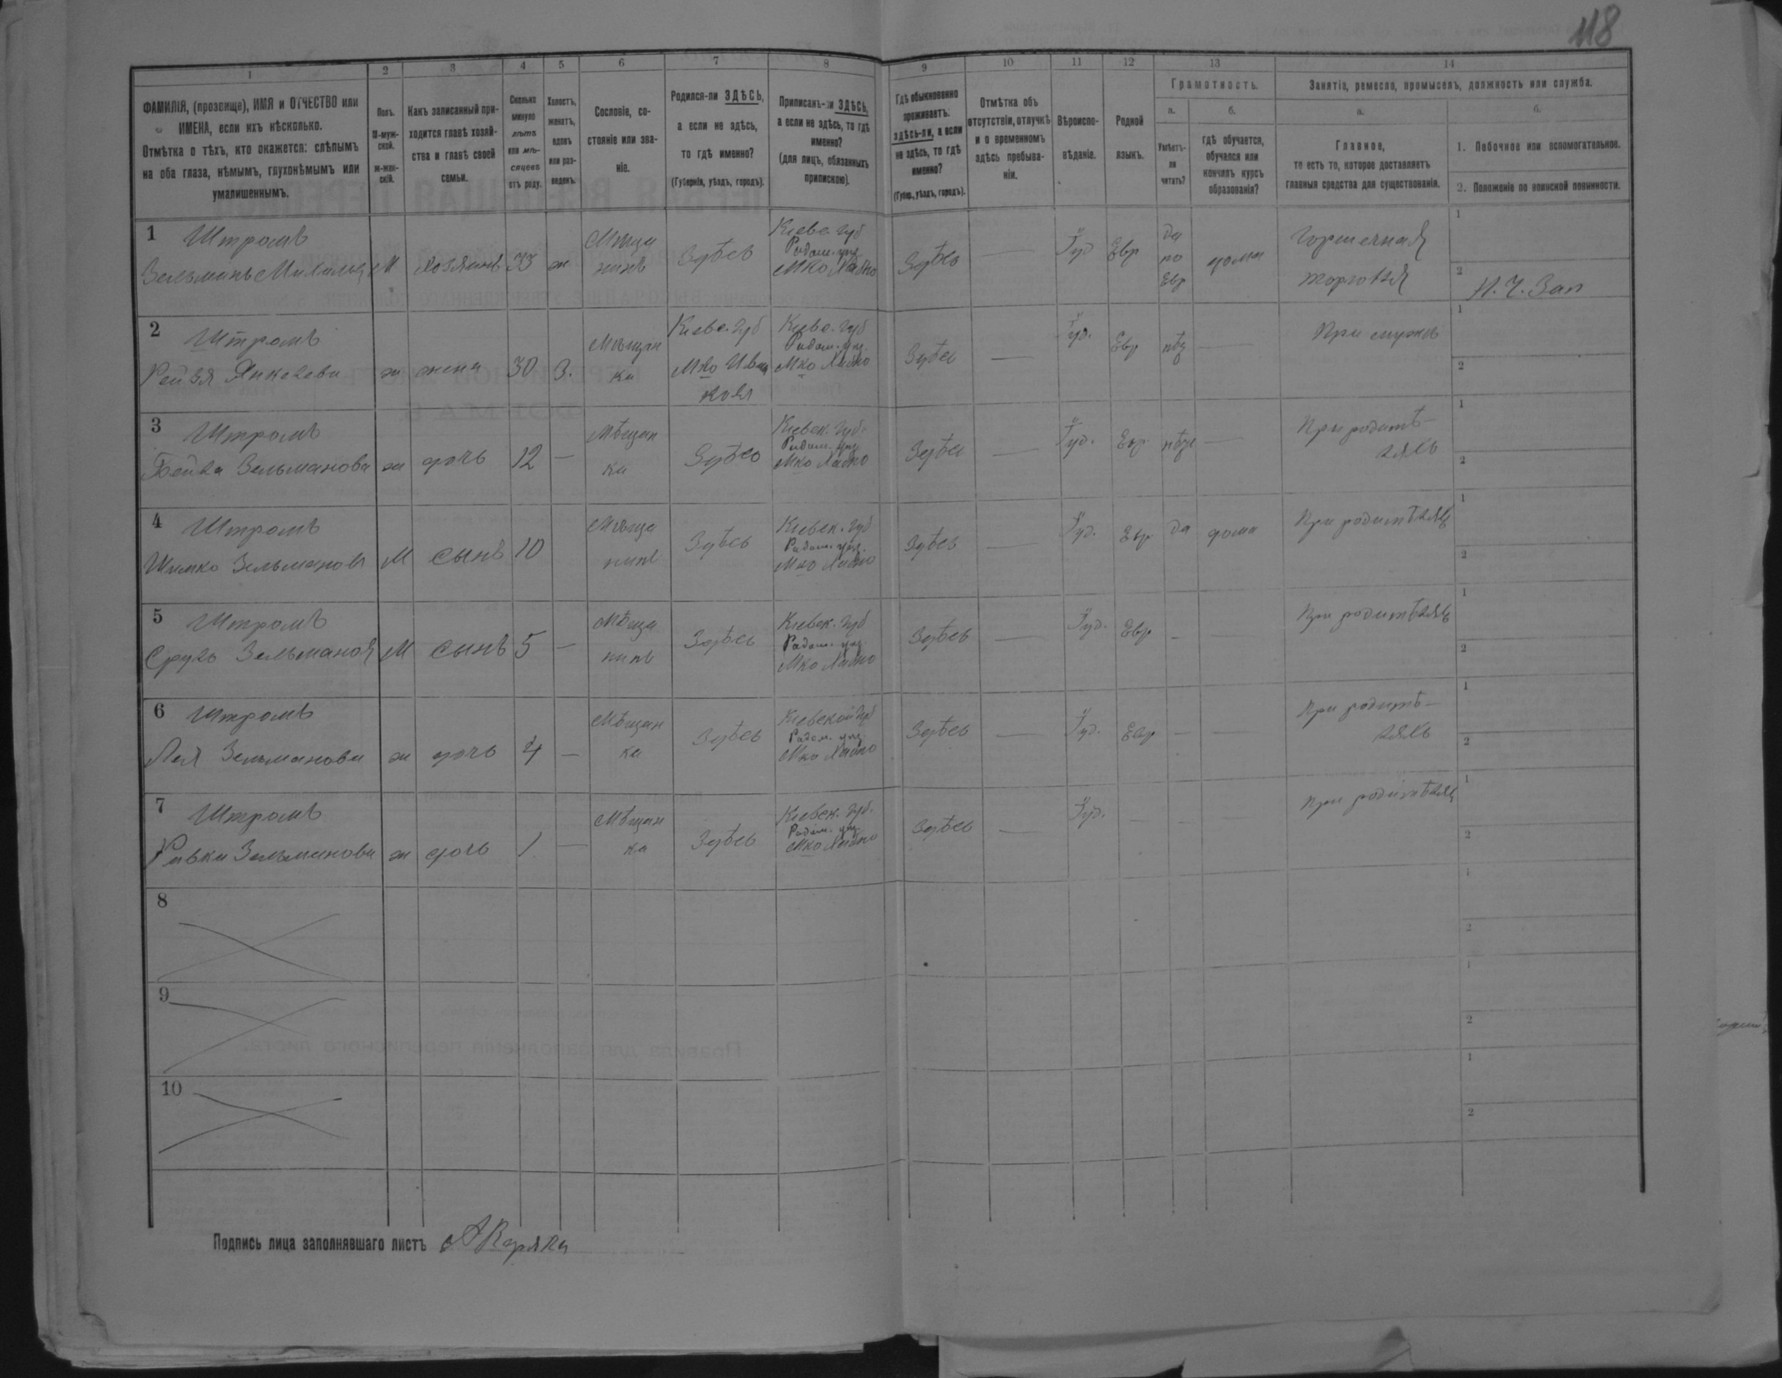 118
1 2 3 4 5 6 7 8 9 10 11 12 13 14
ФАМИЛІЯ, (прозвище), ИМЯ и ОТЧЕСТВО или
ИМЕНА, если ихъ нѣсколько.
Отмѣтка о тѣхъ, кто окажется: слѣпымъ
на оба глаза, нѣмымъ, глухонѣмымъ или
умалишеннымъ.
Полъ.
М-муж-
ской.
ж-жен-
скій.
Какъ записанный при-
ходится главѣ хозяй-
ства и главѣ своей
семьи.
Сколько
минуло
лѣтъ
или мѣ-
сяцевъ
отъ роду.
Холостъ,
женатъ,
вдовъ
или раз-
веденъ.
Сословіе, со-
стояніе или зва-
ніе.
Родился-ли ЗДѢСЬ,
а если не здѣсь,
то гдѣ именно?
(Губернія, уѣздъ, городъ).
Приписанъ-ли ЗДѢСЬ,
а если не здѣсь, то гдѣ
именно?
(для лицъ, обязанныхъ
припискою).
Гдѣ обыкновенно
проживаетъ:
здѣсь-ли, а если
не здѣсь, то гдѣ
именно?
(Губер., уѣздъ, городъ).
Отмѣтка объ
отсутствіи, отлучкѣ
и о временномъ
здѣсь пребыва-
ніи.
Вѣроиспо-
вѣданіе.
Родной
языкъ.
Грамотность.
а.
Умѣетъ-
ли
читать?
б.
гдѣ обучается,
обучался или
кончилъ курсъ
образованія?
Занятіе, ремесло, промыселъ, должность или служба.
а.
Главное,
то есть то, которое доставляетъ
главныя средства для существованія.
б.
1. Побочное или вспомогательное.
2. Положеніе по воинской повинности.
1 Штромъ
Зельманъ М хозяинъ 33 ж Мѣща
нинъ Здѣсь Кіевс. Губ
Радом. уѣз.
Мко Здѣсь — Іуд Евр да
по
Евр дома
торговля
1
2
2 Штромъ
Рейзя Янкелева ж жена 30 З. Мѣщан
ка Кіевс. Губ
Мко Ива
ков Кіевс. Губ
Радом. уѣз.
Мко Здѣсь — Іуд. Евр нѣт — При мужѣ
1
2
3 Штромъ
Бейла Зельманова ж дочь 12 — Мѣщан
ка Здѣсь Кіевск. Губ.
Радом. уѣз.
Мко Здѣсь — Іуд. Евр. нѣт — При родитѣ-
ляхъ
1
2
4 Штромъ
Шимко Зельмановъ М сынъ 10 Мѣща
нинъ Здѣсь Кіевск. Губ
Радом. уѣз.
Мко Здѣсь — Іуд. Евр. да дома При родитѣляхъ
1
2
5 Штромъ
Сруль Зельмановъ М сынъ 5 — Мѣща
нинъ Здѣсь Кіевск. Губ
Радом. уѣз
Мко Здѣсь — Іуд. Евр — — При родитѣляхъ
1
2
6 Штромъ
Лея Зельманова ж дочь 4 — Мѣщан
ка Здѣсь Кіевской Губ
Радом. уѣз.
Мко Здѣсь — Іуд. Евр — — При родитѣ-
ляхъ
1
2
7 Штромъ
Ривка Зельманова ж дочь 1 — Мѣщан
ка Здѣсь Кіевск. Губ.
Радом. уѣз.
Мко Здѣсь — Іуд. — — — При родитѣляхъ
1
2
8
1
2
9
1
2
10
1
2
Подпись лица заполнявшаго листъ